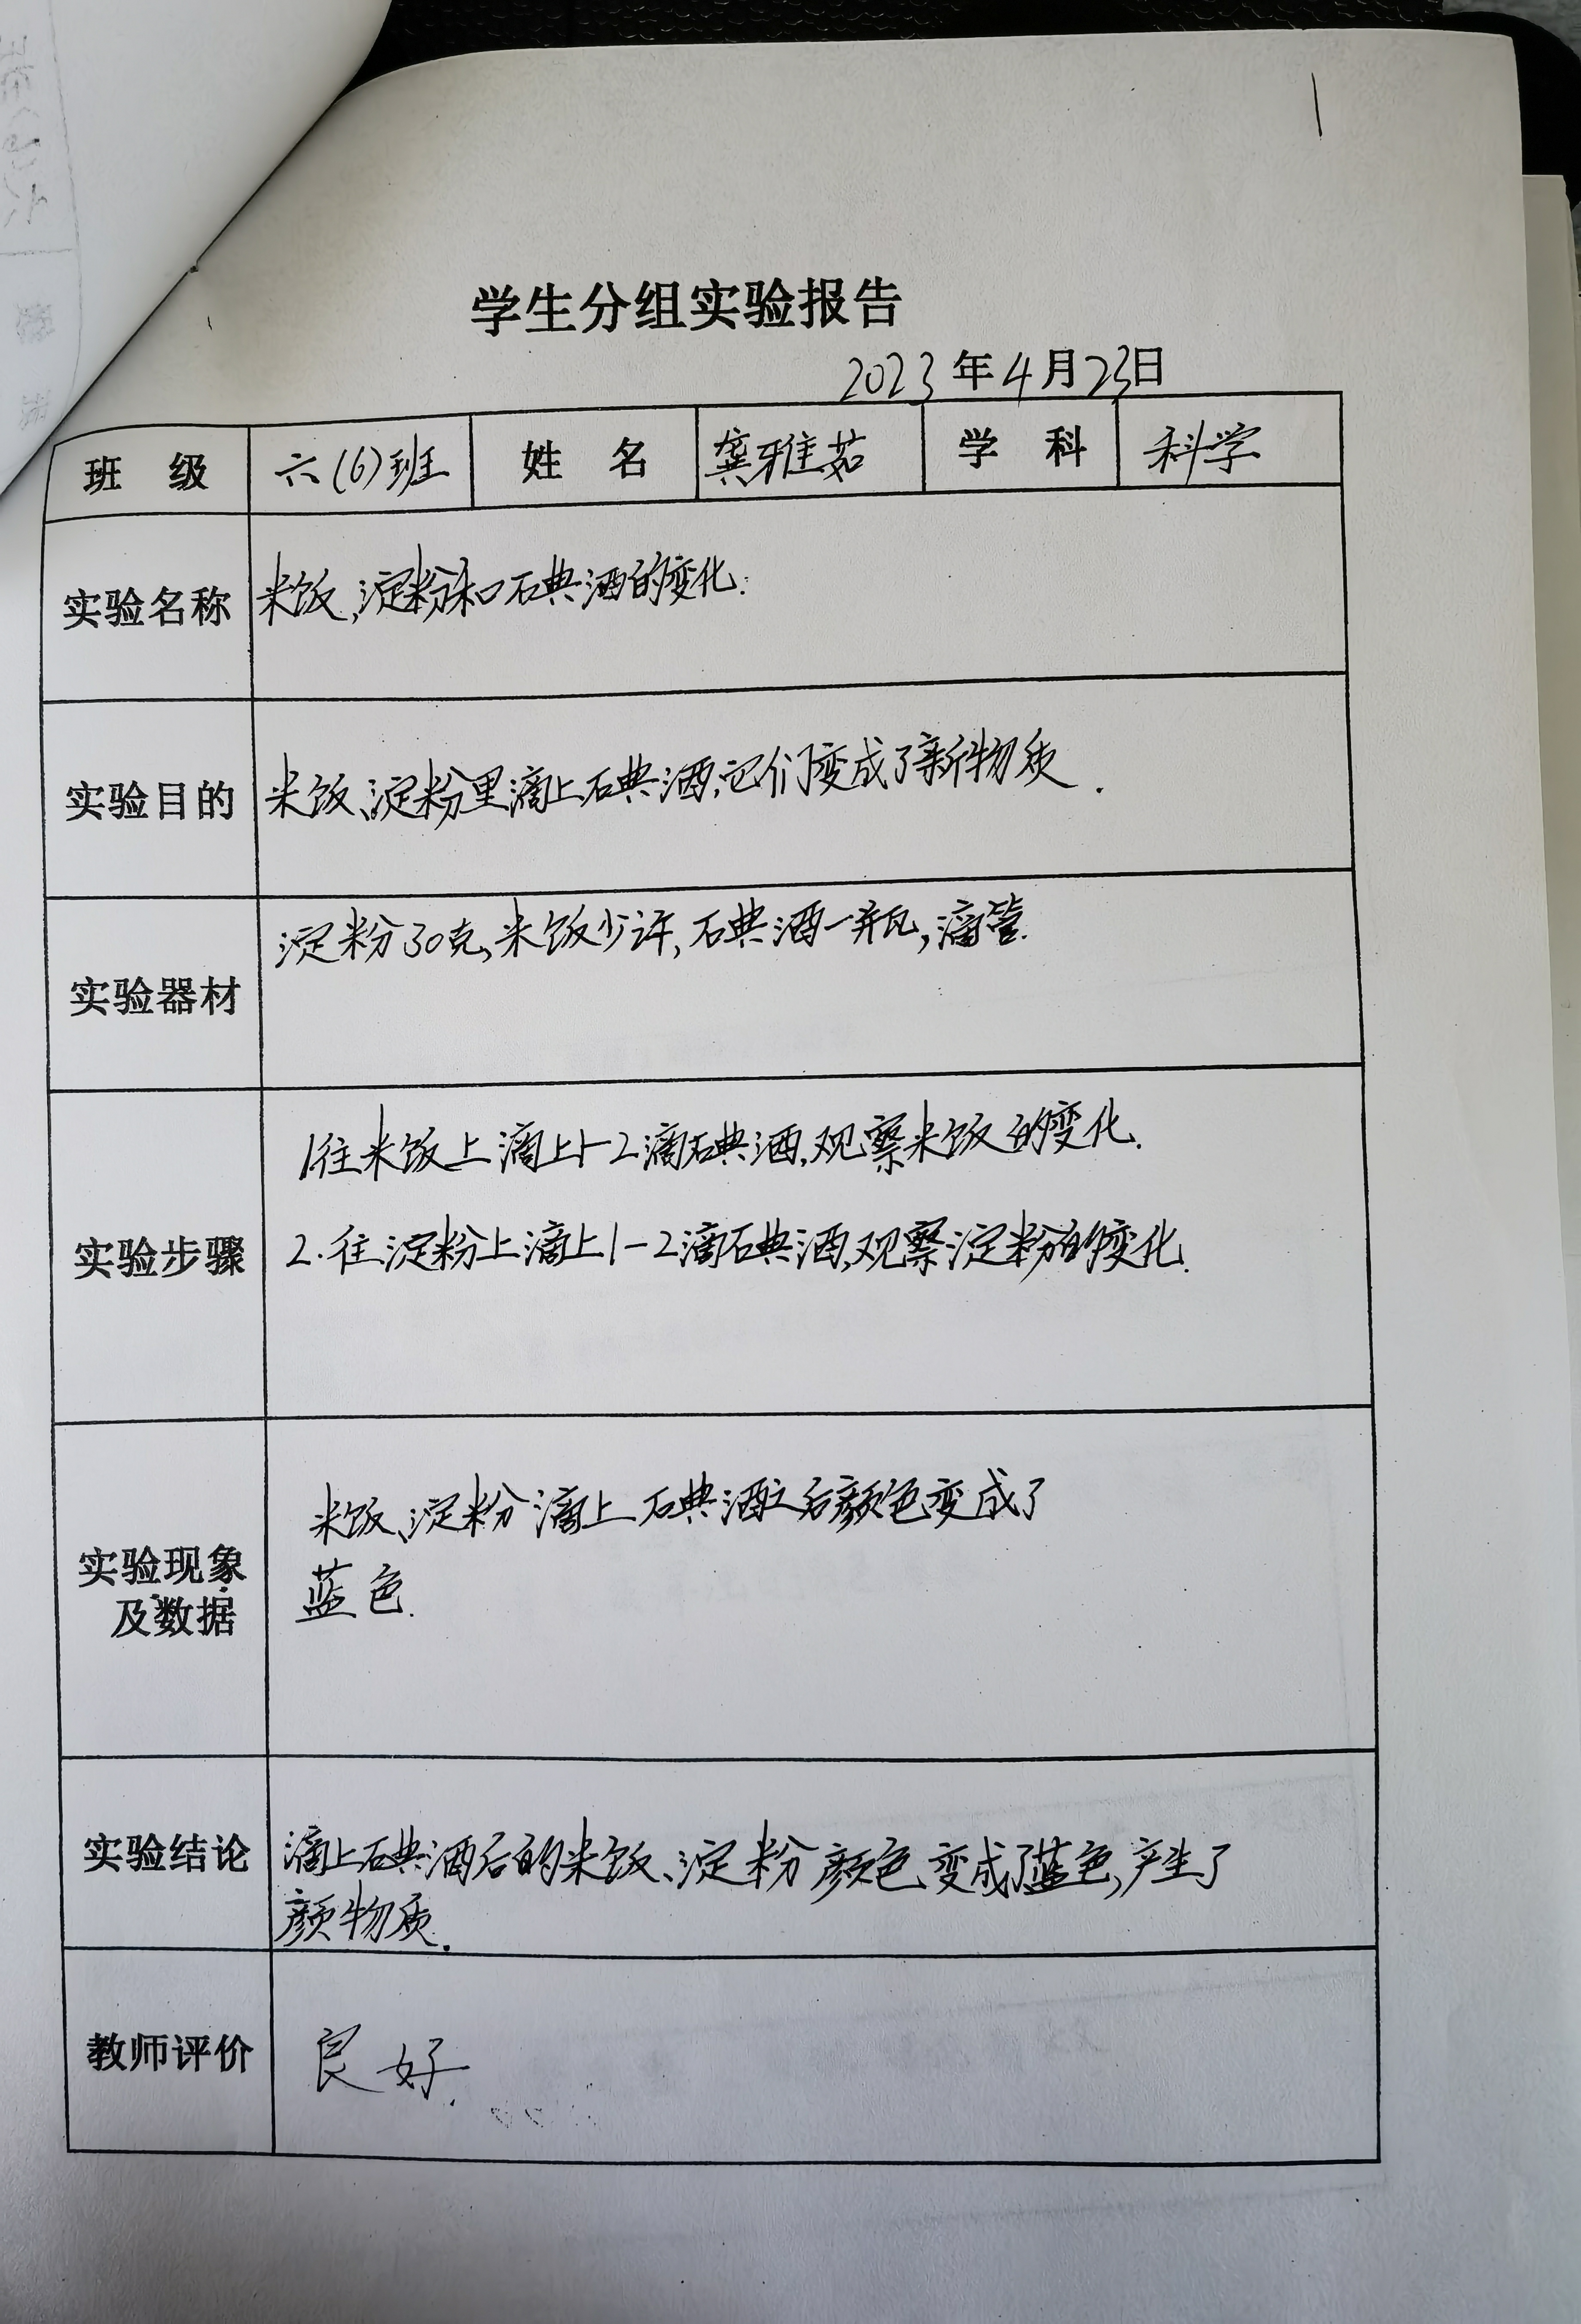 学生分组实验报告
2023年4月23日
班级 六(6)班 姓名 龚雅茹 学科 科学
实验名称 米饭、淀粉和石典酒的变化.
实验目的 米饭、淀粉里滴上石典酒,它们变成了新物质.
实验器材 淀粉30克,米饭少许,石典酒一瓶,滴管.
实验步骤
1.往米饭上滴上1-2滴石典酒,观察米饭的变化.
2.往淀粉上滴上1-2滴石典酒,观察淀粉的变化.
实验现象
及数据
米饭、淀粉滴上石典酒之后颜色变成了
蓝色.
实验结论 滴上石典酒后的米饭、淀粉颜色变成了蓝色,产生了
颜物质.
教师评价 良好.